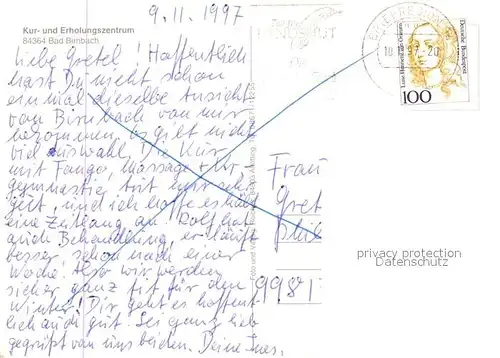 9.11.1997
Kur- und Erholungszentrum
84364 Bad Birnbach
Liebe Gretel! Hoffentlich
hast Du nicht schon
einmal dieselbe Ansicht
von Birnbach von mir
bekommen, es gibt nicht
viel Auswahl. Die Kur
mit Fango, Massage +
gymnastik tut mir sehr
gut, und ich hoffe es hält
eine Zeitlang an. Rolf hat
auch Behandlung, er läuft
besser, schon nach einer
Woche. Also wir werden
sicher ganz fit für den
Winter! Dir geht es hoffent-
lich auch gut. Sei ganz lieb
gegrüßt von uns beiden. Deine Ines.
LANDSHUT
Deutsche Bundespost
100
Frau
Gret
privacy protection
Datenschutz